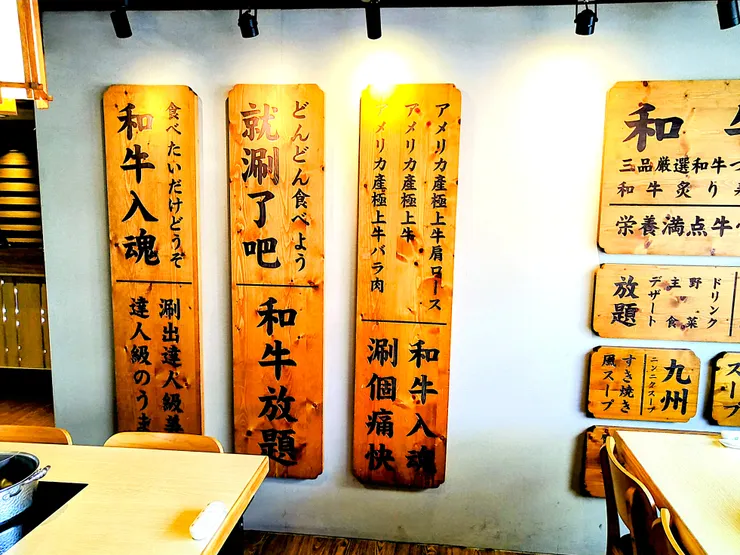 食べたいだけどうぞ
和牛入魂
涮出達人級美
達人級のうま
どんどん食べよう
就涮了吧
和牛放題
アメリカ産極上牛肩ロース
アメリカ産極上牛
アメリカ産極上牛バラ肉
和牛入魂
涮個痛快
和牛
三品厳選和牛つ
和牛炙り寿
栄養満点牛
ドリンク
野菜
主食
デザート
放題
九州
ニンニクスープ
すき焼き
風スープ
スープ